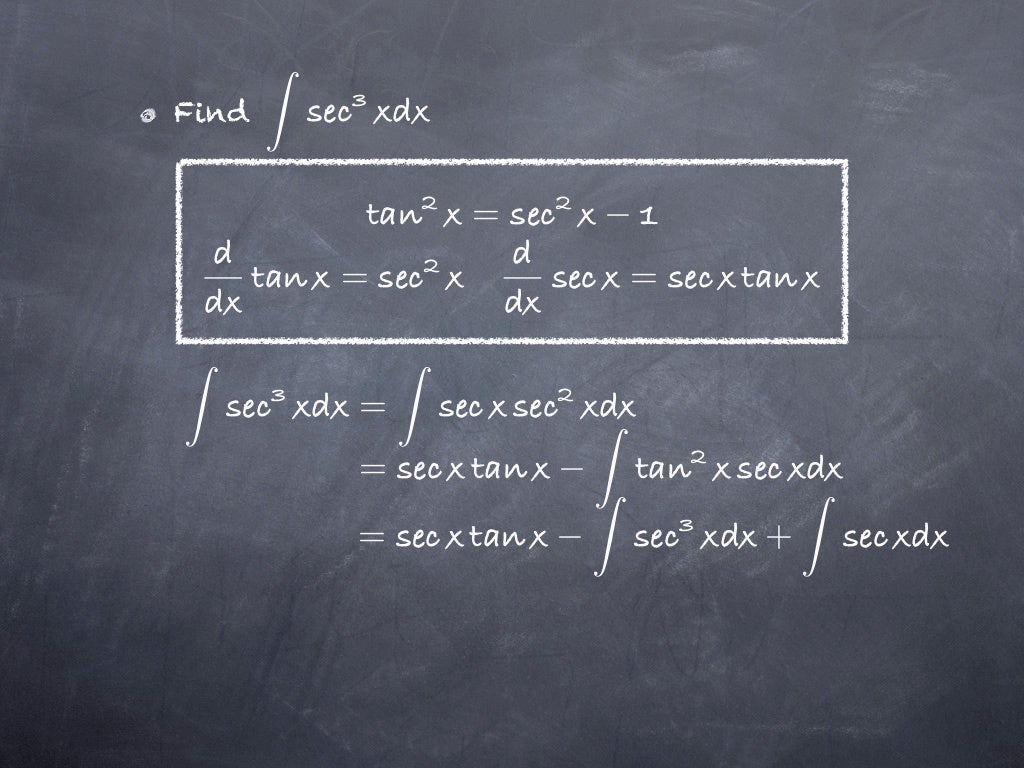 Find ∫ sec³ xdx
tan² x = sec² x − 1
d/dx tan x = sec² x d/dx sec x = sec x tan x
∫ sec³ xdx = ∫ sec x sec² xdx
= sec x tan x − ∫ tan² x sec xdx
= sec x tan x − ∫ sec³ xdx + ∫ sec xdx